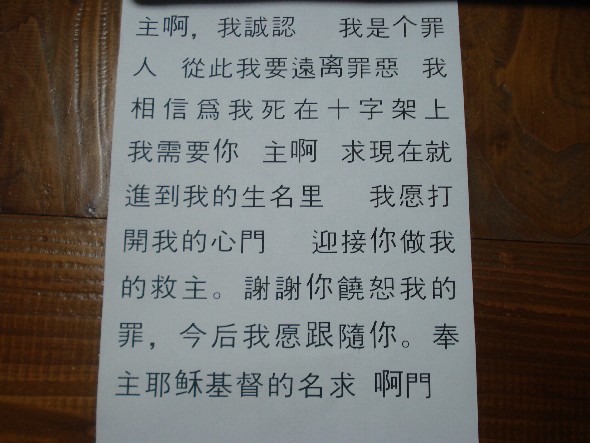 主啊，我誠認 我是个罪
人 從此我要遠离罪惡 我
相信爲我死在十字架上
我需要你 主啊 求現在就
進到我的生名里 我愿打
開我的心門 迎接你做我
的救主。謝謝你饒恕我的
罪，今后我愿跟隨你。奉
主耶稣基督的名求 啊門